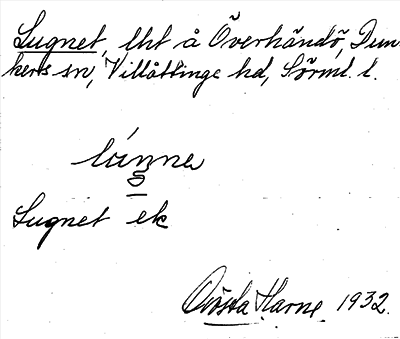 Lugnet, lht å Överhändö, Dun-
kers sn, Villåttinge hd, Sörml. l.
Lugnet ek
Harne 1932.